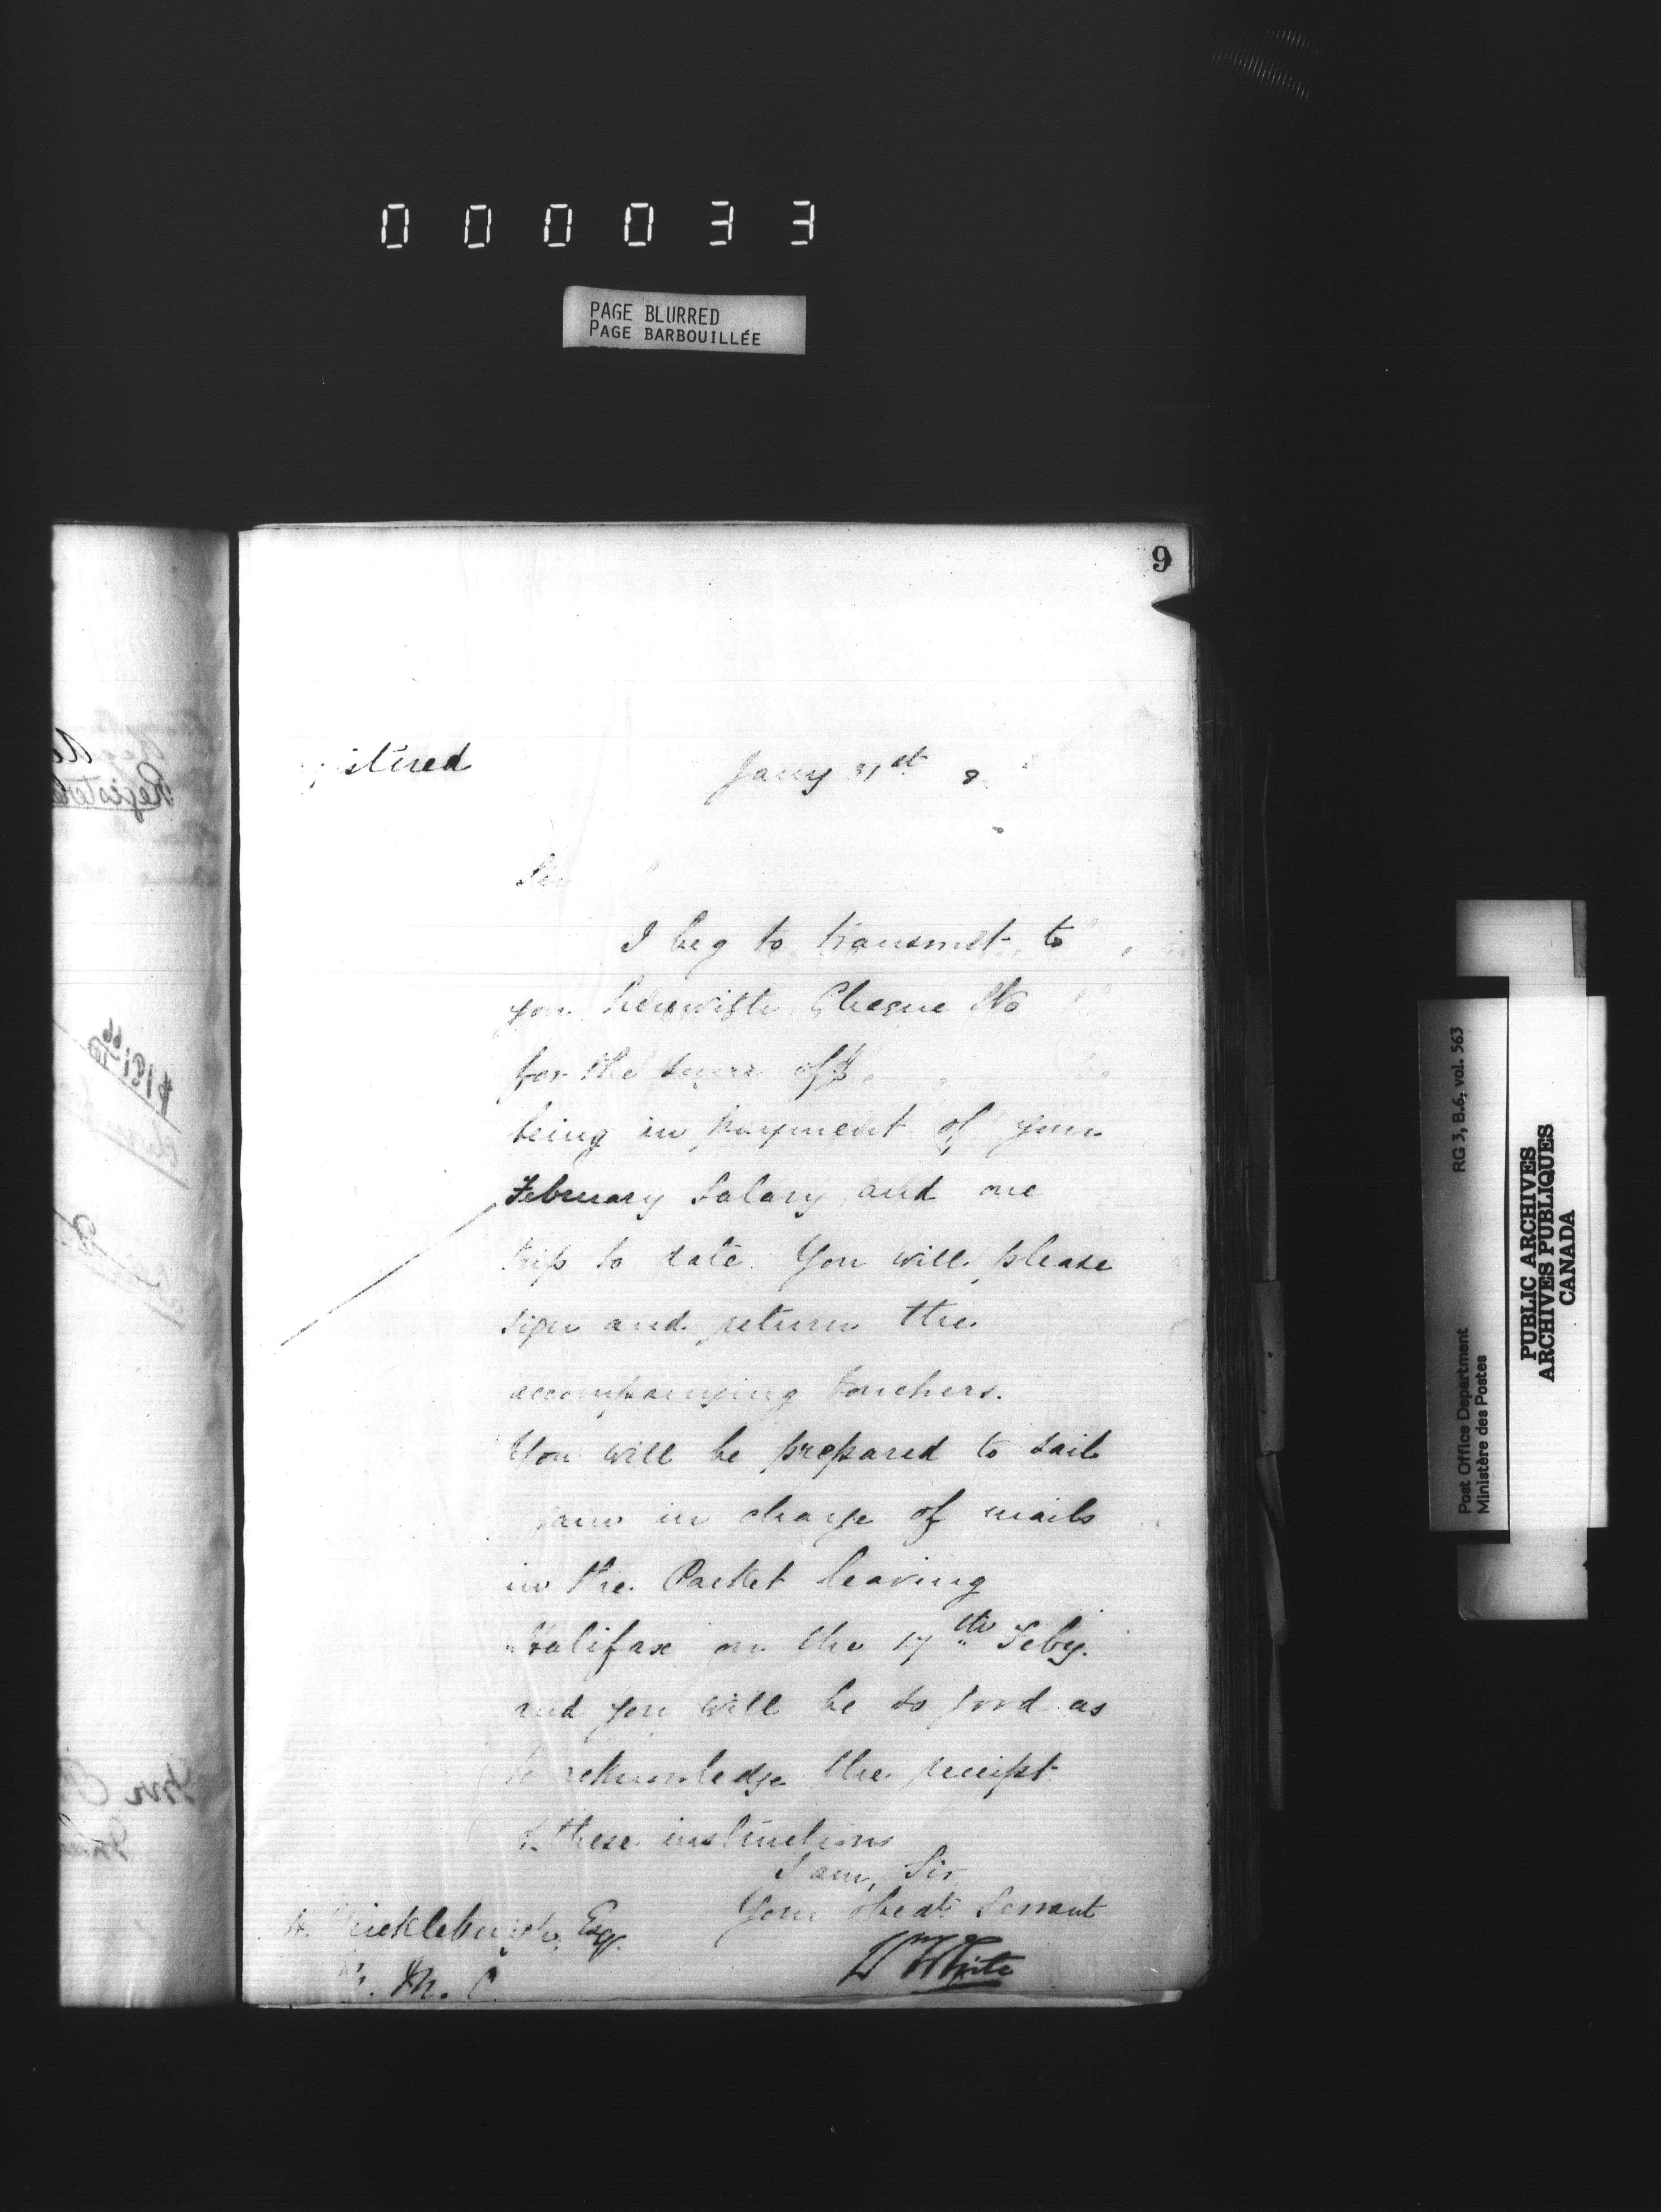 000033
PAGE BLURRED
PAGE BARBOUILLÉE
9
istered
Jany 31st 8
Sir
I beg to transmit to
you herewith Cheque No
for the sum of $
being in payment of your
February Salary and one
trip to date. You will please
sign and return the
accompanying vouchers.
You will be prepared to sail
in charge of mails
in the Packet leaving
Halifax on the 17th Feby.
and you will be so good as
to acknowledge the receipt
of these instructions
I am, Sir
Your obedt Servant
Wm White
Esq.
M. C
Post Office Department
Ministère des Postes
RG 3, B.6, vol. 563
PUBLIC ARCHIVES
ARCHIVES PUBLIQUES
CANADA